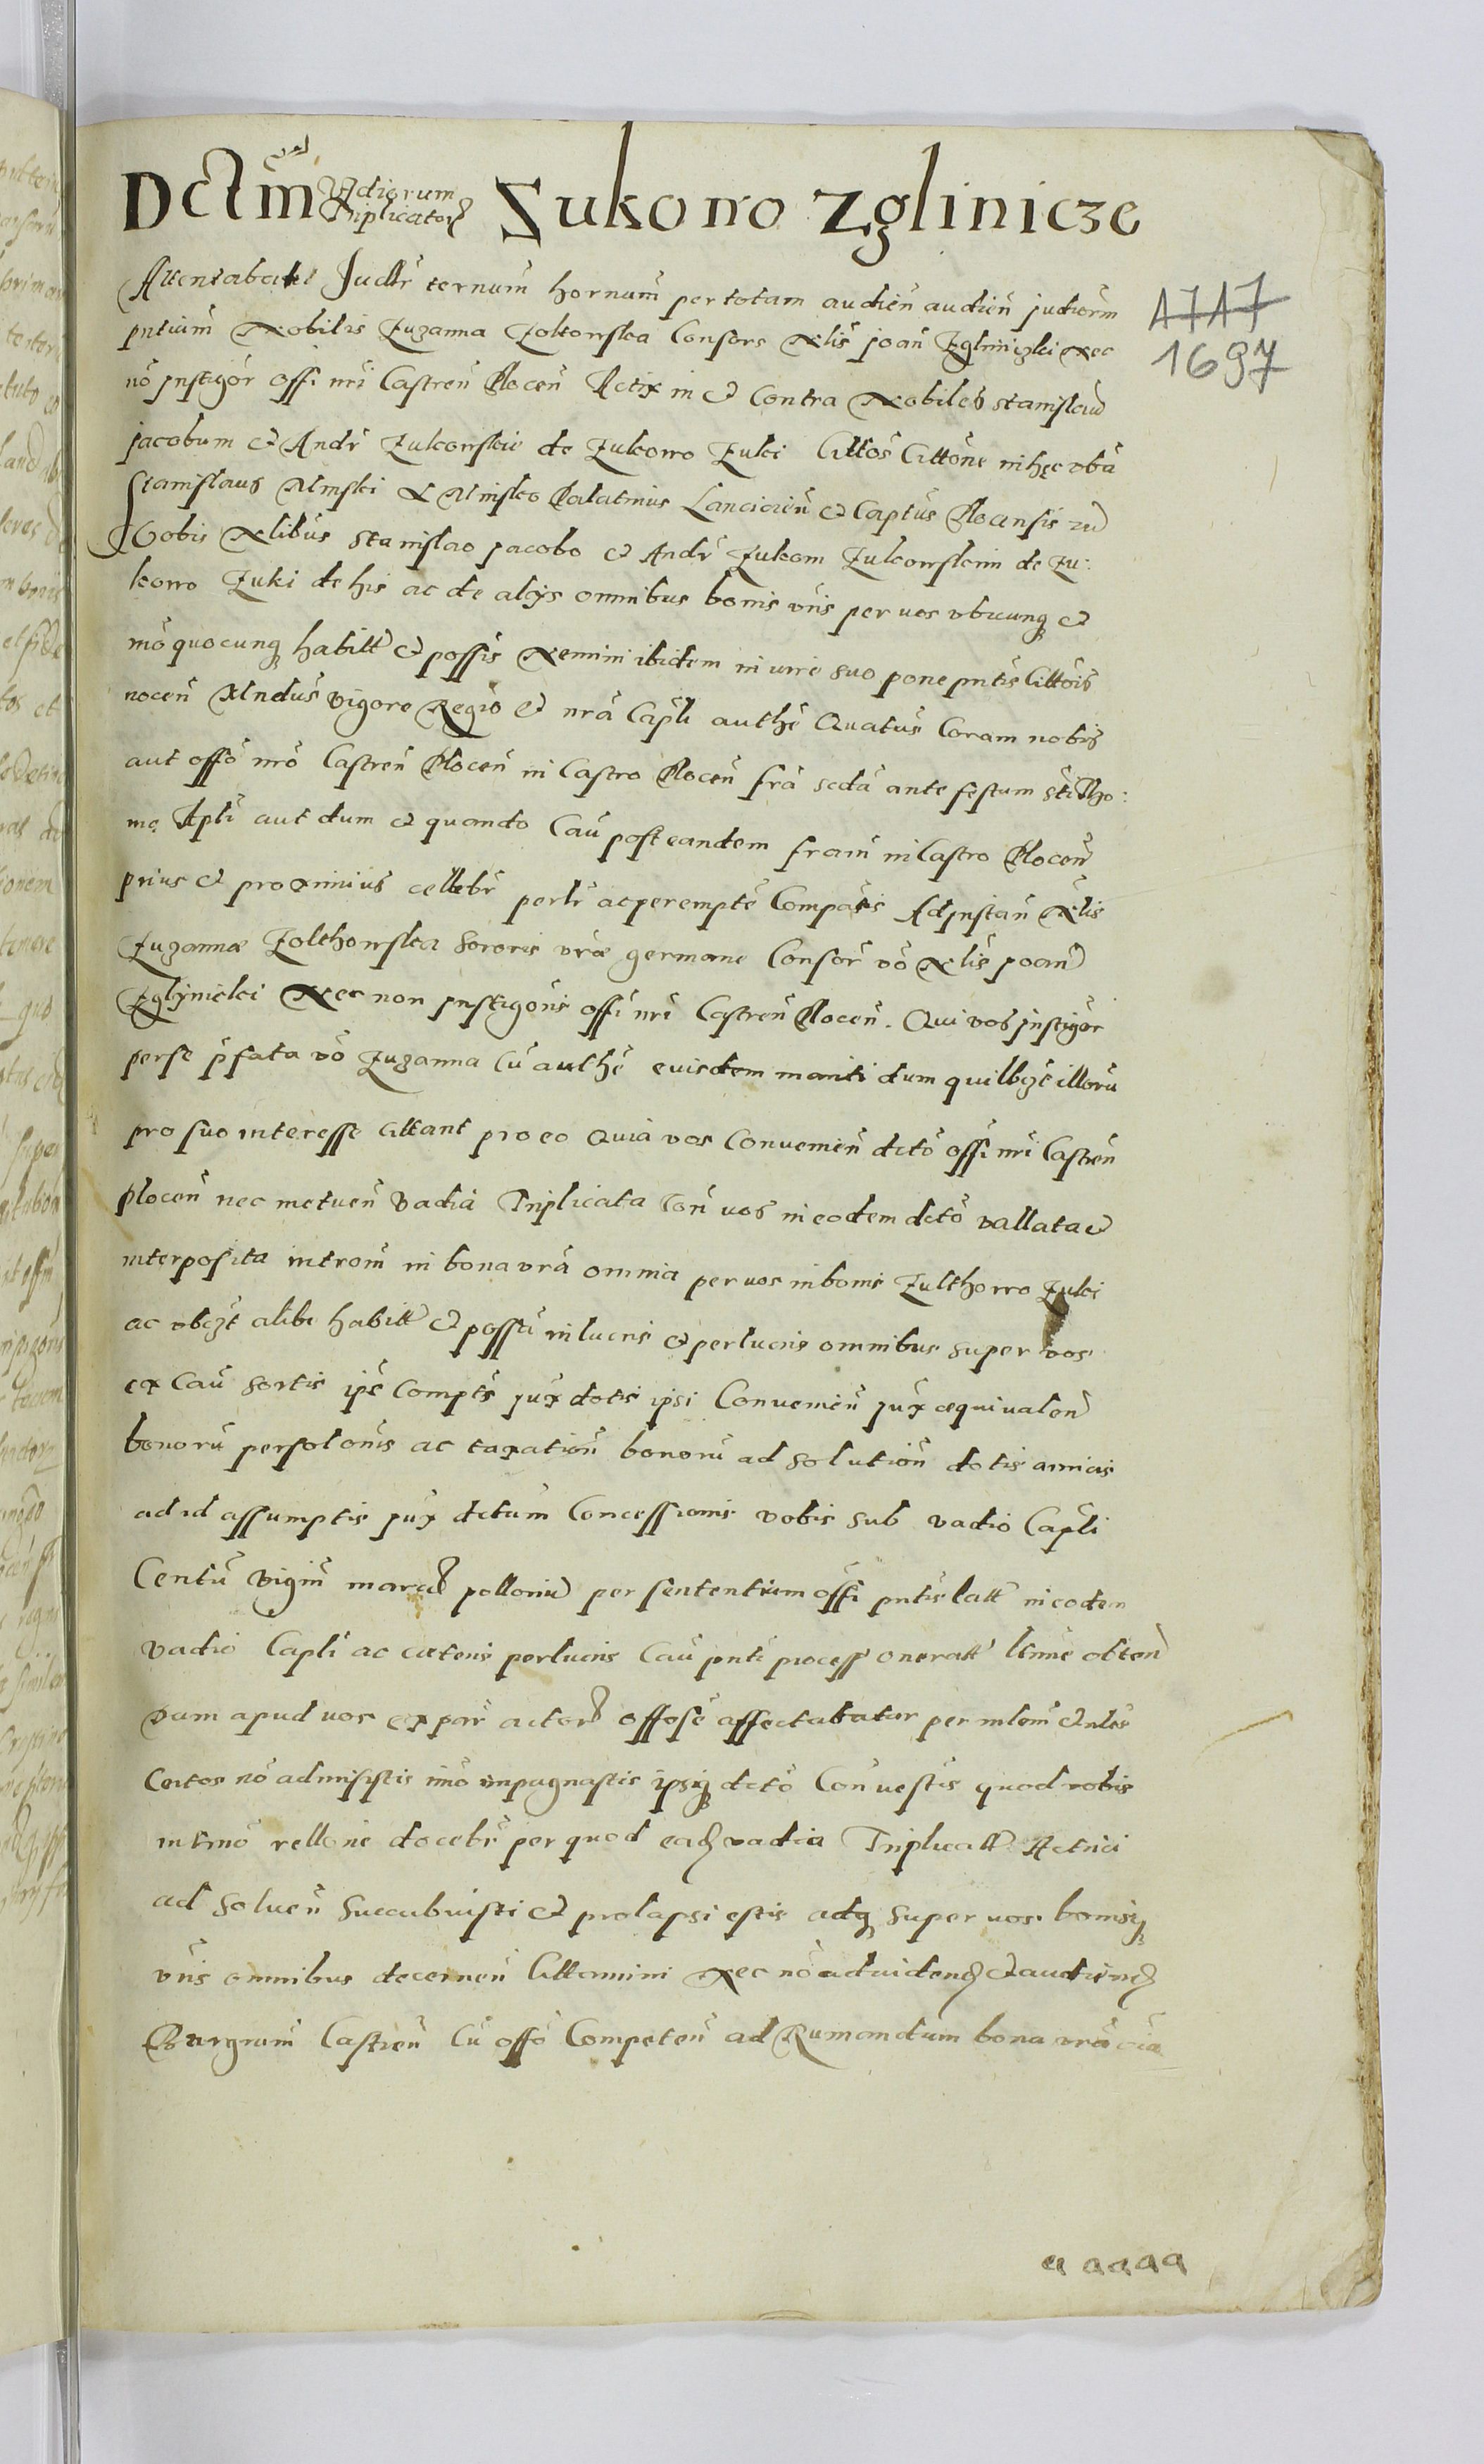 Dctm̃ Vadiorum Triplicator Sukowo Zglinicze
Attentabatt Judlr ternum̃ hornum̃ per totam audien̄ audien̄ judiorm̃
pntium̃ Nobilis Zuzanna Zoltowska Consors Nlis joan̄ Zgliniczki Nec
nō jnstigōr offi nrī Castren̄ Plocen̄ Actrix in et Contra Nobiles stanislaū
jacobum et Andr̄ Zulkowskie de Zulkowo Zuki Cittōs Cittōne in hęc vbā
Stanislaus Minski d Minsko Palatinus Lancicien̄ et Captūs Plocensis
Vobis Nlibus stanislao jacobo et Andr̄ Zulkom Zulkowskim de Zu:
kowo Zuki de his ac de alijs omnibus bonis vr̄is per vos vbicunq et
mō quocunq habitt et possis Nemini ibidem in vire suo pone pntis Cittōis
nocen̄ Mndūs vigore Regio et nrā Caplī authē Quatūs Coram nobis
aut offō nrō Castren̄ Plocen̄ in Castro Plocen̄ frā scdā ante festum sti Tho:
mę Apli aut dum et quando Caū post eandem fram̄ in Castro Plocen̄
prius et proximius cellebr̄ perlr̄ ac peremptē Compātis Ad jnstan̄ Nlis
Zuzannæ Zolthowska sororis vrāe germane Consor̄ vō Nlis joan̄
Zglinicki Nec non jnstigōris offi nrī Castren̄ Plocen̄. Qui vos jnstigōr
per se p̄fata vō Zuzanna Cū authē euisdem mariti dum quilbꝫt illorū
pro suo interesse Cittant pro eo Quia vos Conuenien̄ dctō offi nrī Castren̄
plocen̄ nec metuen̄ Vadiā Triplicata Con̄ vos in eodem dctō vallata et
interposita introm̄ in bona vrā omnia per vos in bonis Zulthowo Zulki
ac vbꝫt alibi habitt et possā in lucris et perlucris omnibus super vos
ex Caū sortis ipē Comptē jux̄ dotis ipsi Conuenien̄ jux̄ æquiualen̄
bonorū persolōnis ac taxation̄ bonorū ad solution̄ dotis amicis
ad id assumptis jux̄ dctum̄ Concessionis vobis sub vadio Caplī
Centū vigin̄ marcar pollonic per sententiam offi pntis latt in eodem
vadio Caplī ac cæteris perlucris Caū pntī process oneratt
dum apud vos ex par̄ actor offosē affectabatur per mlem̄ et nles
Certos nō admisistis imō impugnastis ipsiq dctō Con̄ uestis quod vobis
in tm̄o rellone docebr̄ per quod eadem vadia Triplicatt Actrici
ad soluen̄ succubuisti et prolapsi estis adq super vos bonisq
vr̄is omnibus decernen̄ Cittamini Nec nō ad videnꝫ et audienꝫ
Burgrum̄ Castren̄ Cū offō Competen̄ ad Rumandum bona vrā
1717
1697
a aaaa